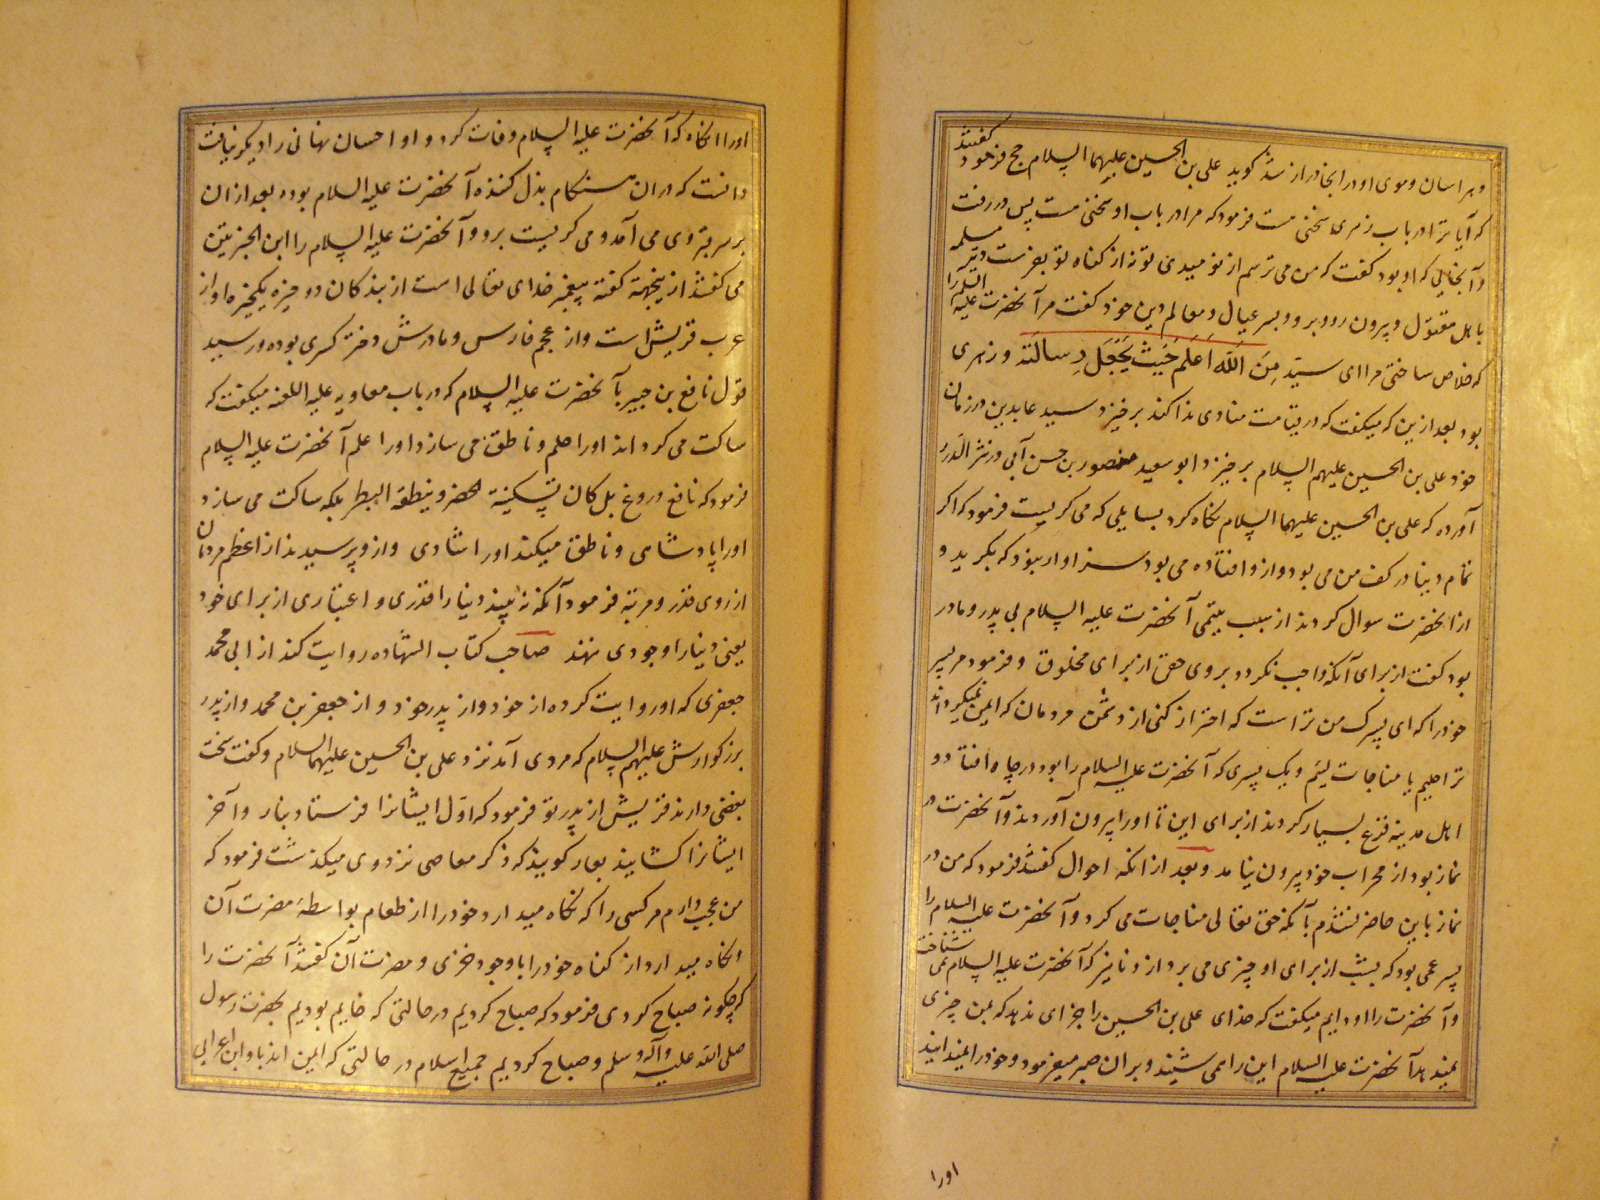 و هراسان و موی او در ایخا دراز شد کوید علی بن الحسین علیهما السلام حج فرمود گفتند
که آیا ترا در باب زهری سخنی هست فرمود که مرا در باب او سخنی هست پس در رفت
و آنجایی که او بود کفت که من می ترسم از نومیدی تو نه از کناه تو بفرست دیت مسلمه
باهل مقتول و بیرون رو و برو بر سر عیال و معالم دین خود کفت مر آنحضرت علیه السلام را
که خلاص ساختی مرا ای سید من الله اعلم حیث یجعل رسالته و زهری
بود بعد ازین که میکفت که در قیامت منادی ندا کند برخیزد سید عابدین در زمان
خود علی بن الحسین علیهم السلام برخیزد ابو سعید منصور بن حسن آبی در نثر الدرر
آورده که علی بن الحسین علیهما السلام نکاه کرد بسایلی که می کریست فرمود که اکر
تمام دنیا در کف من می بود و ازو افتاده می بود سزاوار نبود که بکرید و
از آنحضرت سوال کردند از سبب یتیمی آنحضرت علیه السلام بی پدر و مادر
بود کفت از برای آنکه واجب نکردد بر وی حق از برای مخلوق و فرمود مر پسر
خود را که ای پسرک من تراست که احتراز کنی از دشمن مردمان که ایمن نمیکرداند
ترا حلیم یا مناجات لئیم و یک پسری که آنحضرت علیه السلام را بود در چاه افتاد و
اهل مدینه فزع بسیار کردند از برای این تا او را بیرون آوردند و آنحضرت در
نماز بود از محراب خود بیرون نیامد و بعد از آنکه احوال کفتند فرمود که من در
نماز باین حاضر نشدم بآنکه حق تعالی مناجات می کرد و آنحضرت علیه السلام را
پسر عمی بود که بشب از برای او چیزی می برد از دنانیر که آنحضرت علیه السلام نمی شناخت
و آنحضرت را او دایم میکفت که خدای علی بن الحسین را جزای ندهد که بمن چیزی
نمیدهد آنحضرت علیه السلام این را می شنید و بران صبر میفرمود و خود را نمیدانید
اورا
اورا آنکاه که آنحضرت علیه السلام وفات کرد و او احسان نهانی را دیکر نیافت
دانست که در ان هنکام بذل کننده آنحضرت علیه السلام بوده بعد از ان
بر سر قبر وی می آمد و می کریست برو و آنحضرت علیه السلام را ابن الخیرتین
می کفتند از ینجهة کفته پیغمبر خدای تعالی است از بندکان دو خیره یکخیره او از
عرب قریش است و از عجم فارس و مادرش دختر کسری بوده و رسید
قول نافع بن جبیر بآنحضرت علیه السلام که در باب معاویه علیه اللعنه میکفت که
ساکت می کرداند او را حلم و ناطق می سازد او را علم آنحضرت علیه السلام
فرمود که نافع دروغ بل کان تسکینه الحضر و ینطقه البطر بلکه ساکت می سازد
او را پادشاهی و ناطق میکند او را شادی و ازو پرسیدند از اعظم مردمان
از روی قدر و مرتبه فرمود آنکه نه بیند دنیا را قدری و اعتباری از برای خود
یعنی دنیا را وجودی ننهد صاحب کتاب الشهاده روایت کند از ابی محمد
جعفری که او روایت کرده از خود و از پدر خود و از جعفر بن محمد و از پدر
بزرکوارش علیهم السلام که مردی آمد نزد علی بن الحسین علیهما السلام و کفت سخت
بغضی دارند قریش از پدر تو فرمود که اول ایشانرا فرستاد بنار و آخر
ایشانرا کشانید بعار کویند که ذکر معاصی نزد وی میکذشت فرمود که
من عجب دارم مر کسی را که نکاه میدارد خود را از طعام بواسطه مضرت آن
و نکاه میدارد از کناه خود را با وجود خزی و مضرت آن کفتند آنحضرت را
که چکونه صباح کردی فرمود که صباح کردیم در حالتی که خایم بودیم بحضرت رسول
صلی الله علیه و آله و سلم و صباح کردیم جمیع اسلام در حالتی که ایمن اند باو ابن اعرابی